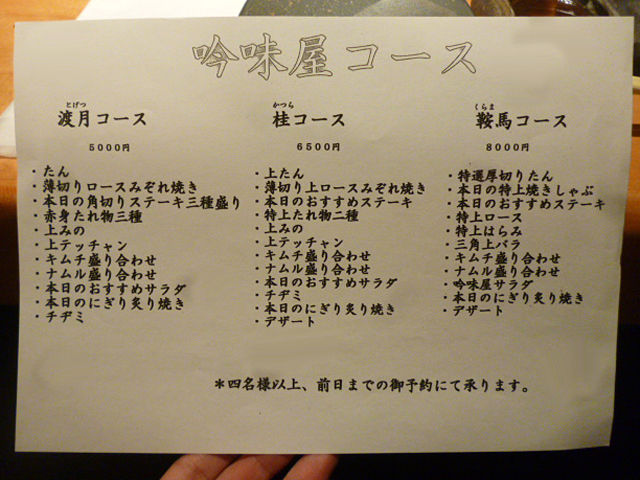 吟味屋コース
とげつ
渡月コース
5000円
・たん
・薄切りロースみぞれ焼き
・本日の角切りステーキ三種盛り
・赤身たれ物三種
・上みの
・上テッチャン
・キムチ盛り合わせ
・ナムル盛り合わせ
・本日のおすすめサラダ
・本日のにぎり炙り焼き
・チヂミ
かつら
桂コース
6500円
・上たん
・薄切り上ロースみぞれ焼き
・本日のおすすめステーキ
・特上たれ物二種
・上みの
・上テッチャン
・キムチ盛り合わせ
・ナムル盛り合わせ
・本日のおすすめサラダ
・チヂミ
・本日のにぎり炙り焼き
・デザート
くらま
鞍馬コース
8000円
・特選厚切りたん
・本日の特上焼きしゃぶ
・本日のおすすめステーキ
・特上ロース
・特上はらみ
・三角上バラ
・キムチ盛り合わせ
・ナムル盛り合わせ
・吟味屋サラダ
・本日のにぎり炙り焼き
・デザート
＊四名様以上、前日までの御予約にて承ります。